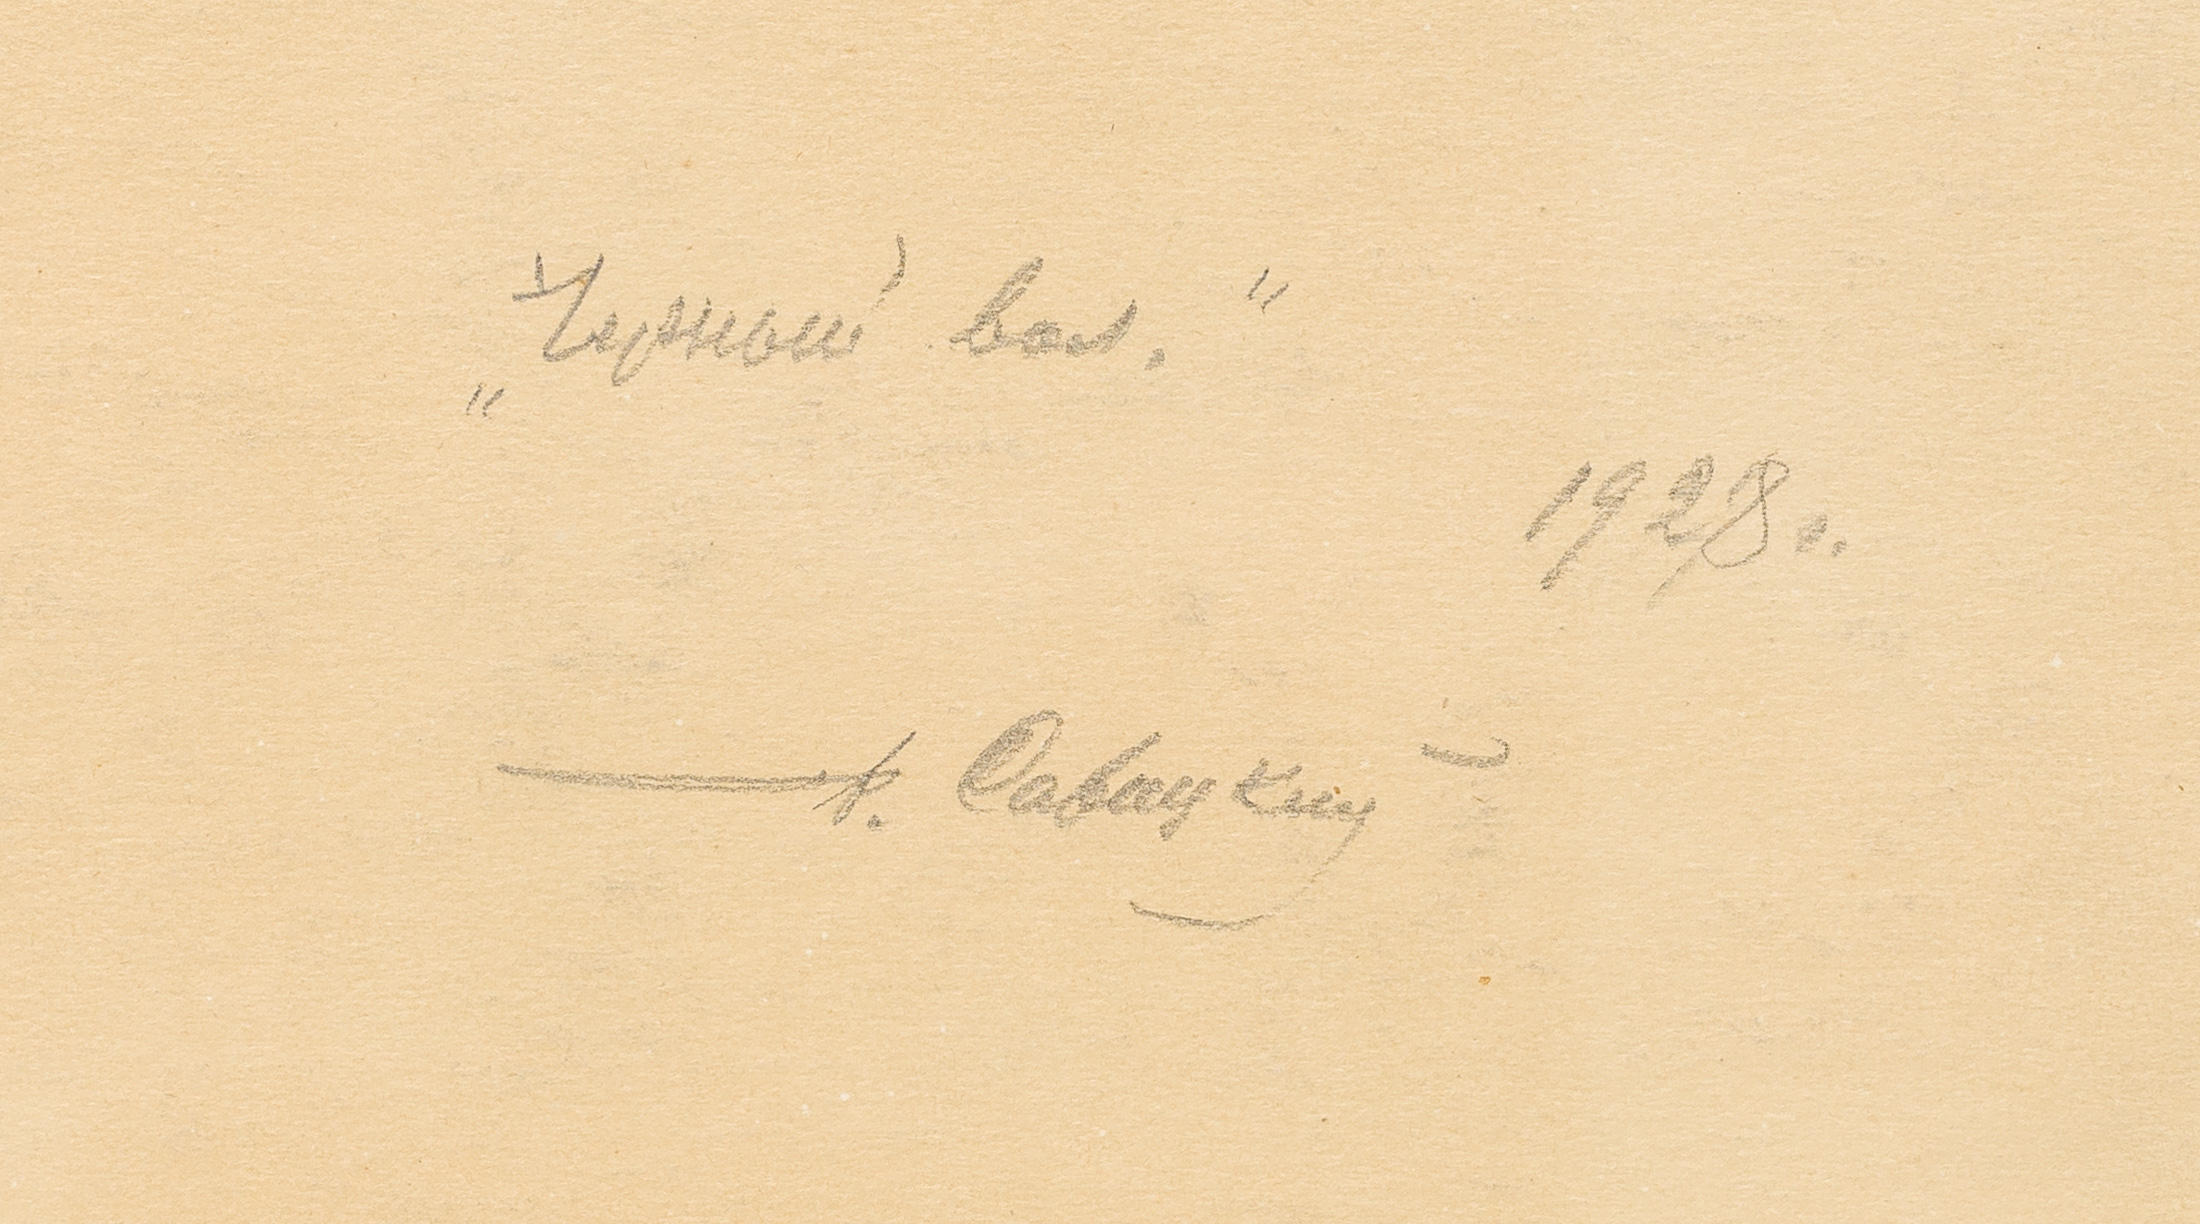 „Черный вол.“
1928 г.
К. Савицкий